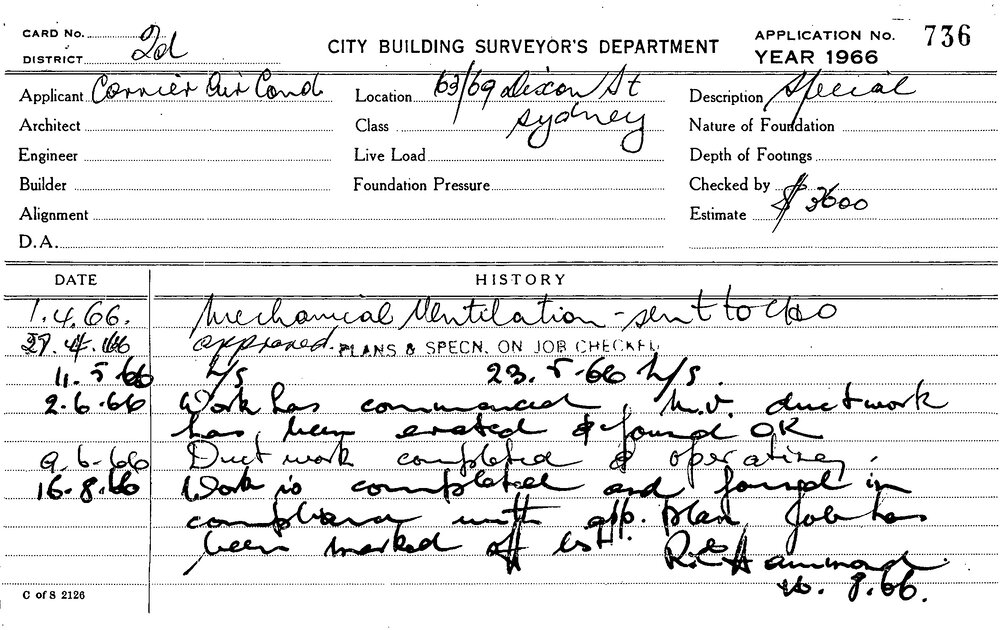 CARD No.
DISTRICT 2d
CITY BUILDING SURVEYOR'S DEPARTMENT
APPLICATION No. 736
YEAR 1966
Applicant Carrier Air Cond
Location 63/69 Dixon St
Sydney
Description Special
Architect
Class
Nature of Foundation
Engineer
Live Load
Depth of Footings
Builder
Foundation Pressure
Checked by
Alignment
Estimate $ 3600
D.A.
DATE HISTORY
1.4.66. Mechanical Ventilation - sent to
27.4.66 approved. PLANS & SPECN. ON JOB CHECKED
11.5.66 h/s 23.5.66 h/s.
2.6.66 Work has commenced, m.v. ductwork
has been erected & found OK
9.6.66 Duct work completed & operating.
16.8.66 Work is completed and found in
compliance with app. plan Job has
been marked off list. Hammond
16.8.66.
C of S 2126